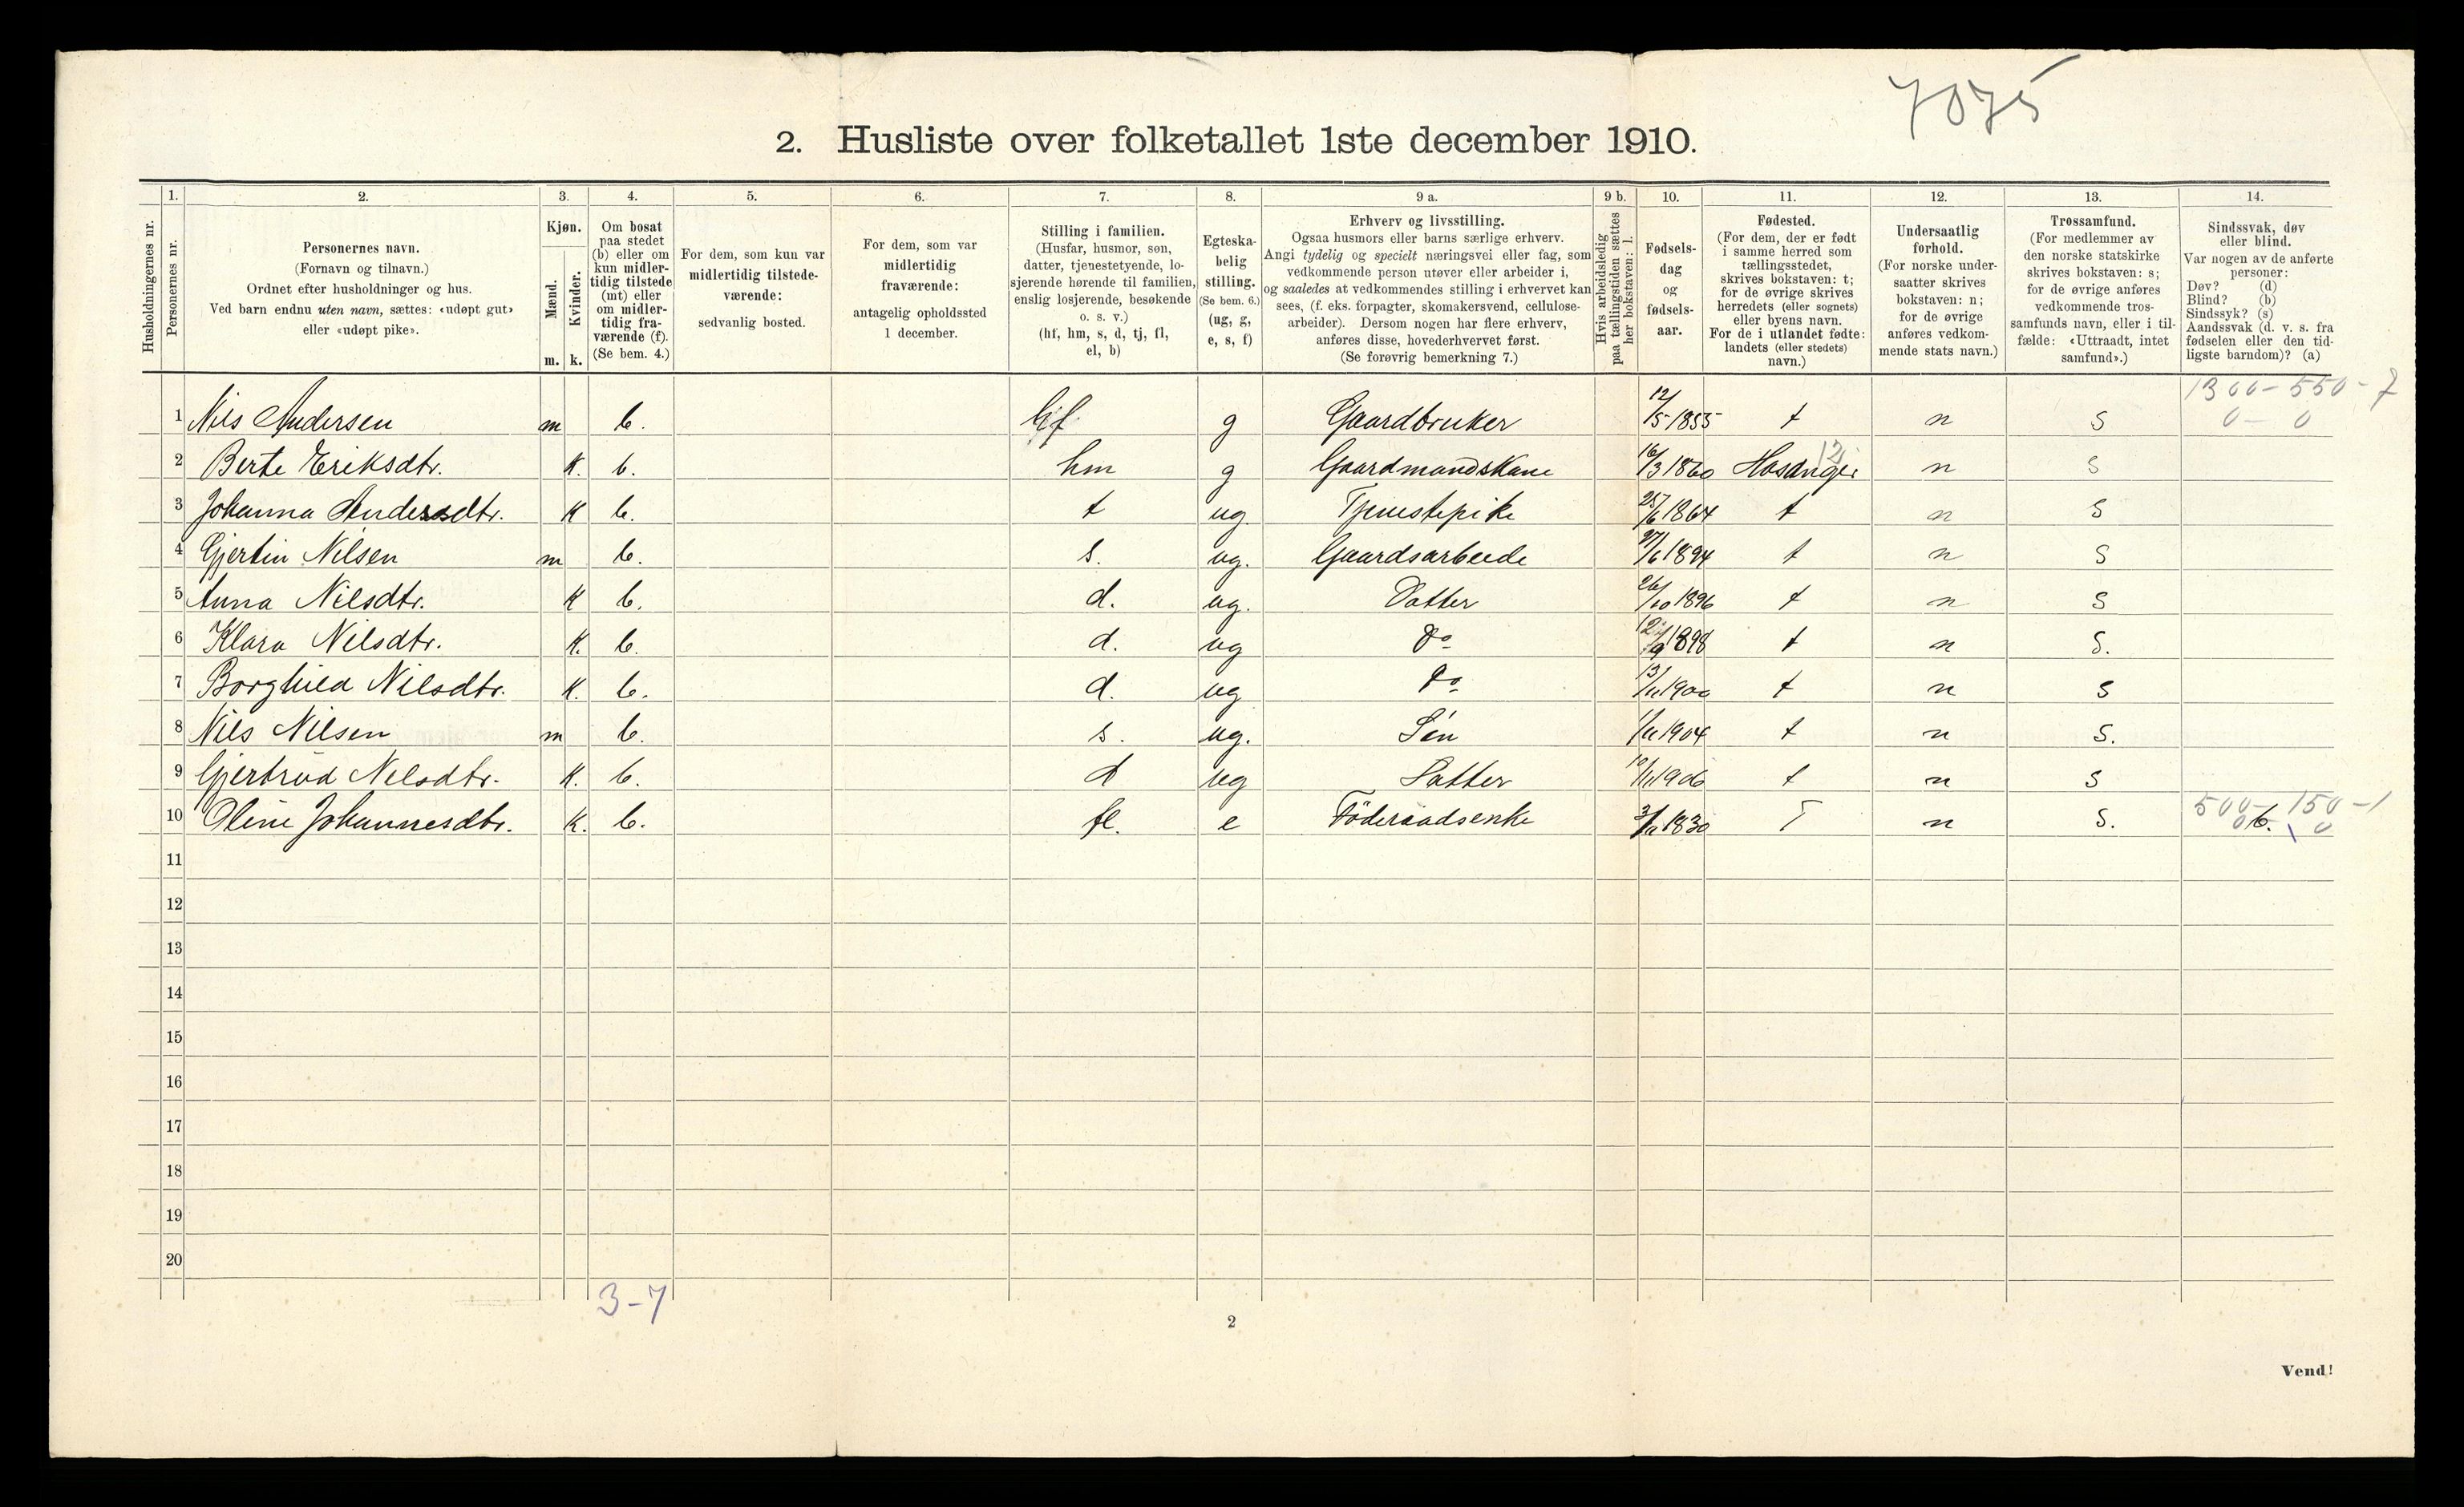 7075
2. Husliste over folketallet 1ste december 1910.
1. 2. 3. 4. 5. 6. 7. 8. 9 a. 9 b. 10. 11. 12. 13. 14.
Husholdningernes nr.
Personernes nr.
Personernes navn.
(Fornavn og tilnavn.)
Ordnet efter husholdninger og hus.
Ved barn endnu uten navn, sættes: «udøpt gut»
eller «udøpt pike».
Kjøn.
Mænd.
Kvinder.
m. k.
Om bosat
paa stedet
(b) eller om
kun midler-
tidig tilstede
(mt) eller
om midler-
tidig fra-
værende (f).
(Se bem. 4.)
For dem, som kun var
midlertidig tilstede-
værende:
sedvanlig bosted.
For dem, som var
midlertidig
fraværende:
antagelig opholdssted
1 december.
Stilling i familien.
(Husfar, husmor, søn,
datter, tjenestetyende, lo-
sjerende hørende til familien,
enslig losjerende, besøkende
o. s. v.)
(hf, hm, s, d, tj, fl,
el, b)
Egteska-
belig
stilling.
(Se bem. 6.)
(ug, g,
e, s, f)
Erhverv og livsstilling.
Ogsaa husmors eller barns særlige erhverv.
Angi tydelig og specielt næringsvei eller fag, som
vedkommende person utøver eller arbeider i,
og saaledes at vedkommendes stilling i erhvervet kan
sees, (f. eks. forpagter, skomakersvend, cellulose-
arbeider). Dersom nogen har flere erhverv,
anføres disse, hovederhvervet først.
(Se forøvrig bemerkning 7.)
Hvis arbeidsledig
paa tællingstiden sættes
her bokstaven: l.
Fødsels-
dag
og
fødsels-
aar.
Fødested.
(For dem, der er født
i samme herred som
tællingsstedet,
skrives bokstaven: t;
for de øvrige skrives
herredets (eller sognets)
eller byens navn.
For de i utlandet fødte:
landets (eller stedets)
navn.)
Undersaatlig
forhold.
(For norske under-
saatter skrives
bokstaven: n;
for de øvrige
anføres vedkom-
mende stats navn.)
Trossamfund.
(For medlemmer av
den norske statskirke
skrives bokstaven: s;
for de øvrige anføres
vedkommende tros-
samfunds navn, eller i til-
fælde: «Uttraadt, intet
samfund».)
Sindssvak, døv
eller blind.
Var nogen av de anførte
personer:
Døv? (d)
Blind? (b)
Sindssyk? (s)
Aandssvak (d. v. s. fra
fødselen eller den tid-
ligste barndom)? (a)
1300-550-7
1 Nils Andersen m b. hf g Gaardbruker 12/5 1855 t n s 0 - 0
2 Berte Eriksdtr. K. b. hm g Gaardmandskane 16/3 1860 n s
3 Johanna Andersdtr. K b. t ug Tjenestepike 25/6 1864 t n s
4 Gjertin Nilsen m b. s. ug. Gaardsarbeide 27/6 1894 t n s
5 Anna Nilsdtr. K b. d. ug. Datter 26/10 1896 t n s
6 Klara Nilsdtr. K. b. d. ug Do 1898 t n s.
7 Borghild Nilsdtr. K. b. d. ug Do 13/11 1900 t n s
8 Nils Nilsen m b. s. ug. Sön 1904 t n s.
9 Gjertrud Nilsdtr. K. b. d ug Datter 1906 t n s
10 Oline Johannesdtr. K. b. fl. e Föderaadsenke 1830 T n s. 500-150-1
0 b. 0
11
12
13
14
15
16
17
18
19
20
3-7
2
Vend!